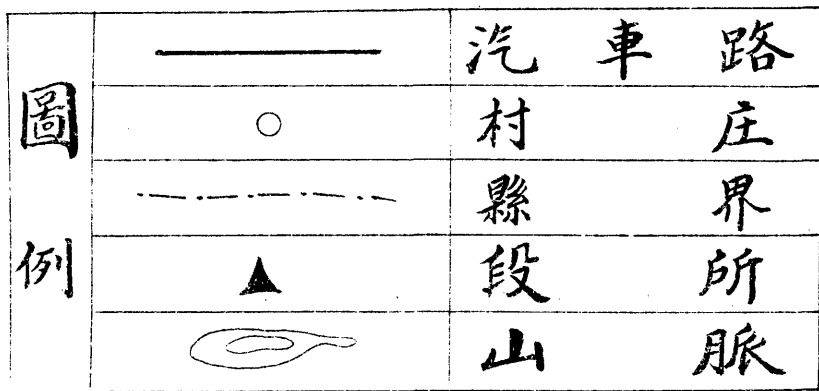 圖例
汽車路
村庄
縣界
段所
山脈